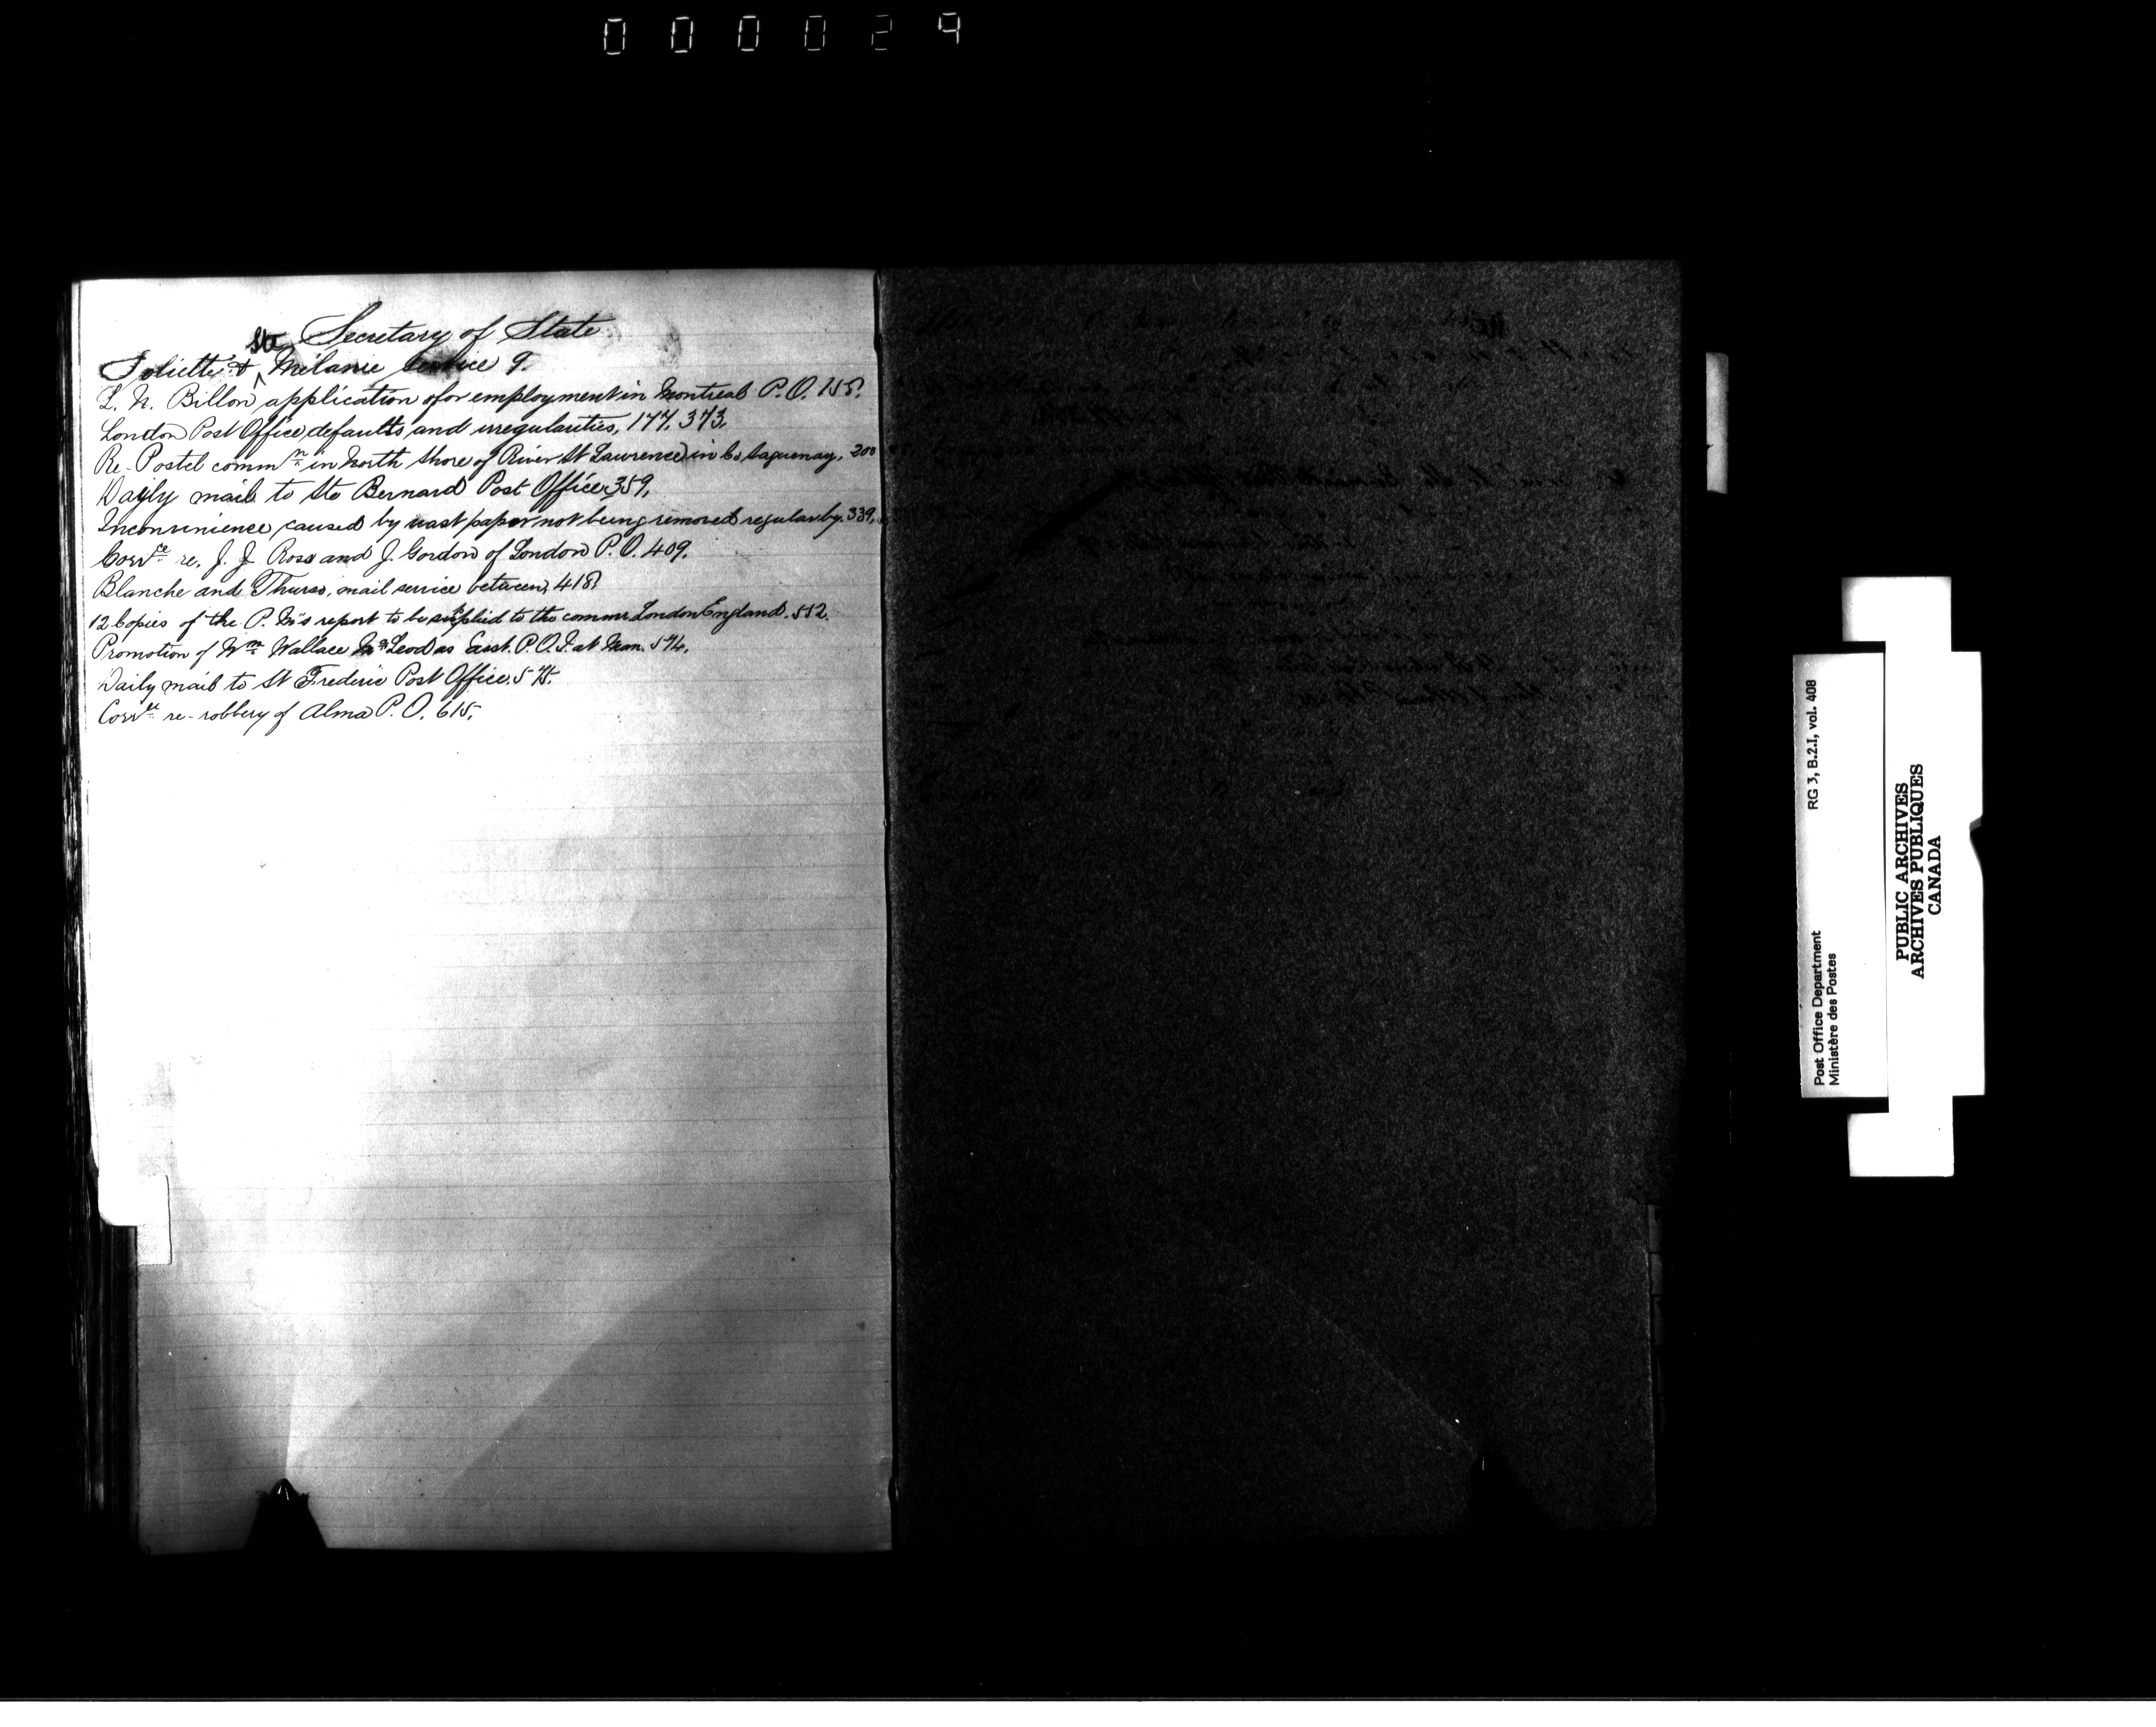 000029
Secretary of State
Joliette & Ste Mélanie Service 9.
L. N. Billon, application ofor employment in Montreal P. O. 158.
London Post Office, defaults and irregularities, 177, 373,
Re-Postel commn in North Shore of River St Lawrence in Co Saguenay, 200
Dayly mail to Ste Bernard Post Office 359,
Inconvinience caused by wast paper not being removed regularly. 339,
Corrce re. J. J. Ross and J. Gordon of London P. O. 409.
Blanche and Thurso, mail service between, 418
12 Copies of the P. M's report to be supplied to the commr London England. 552.
Promotion of Wm Wallace McLeod as Asst. P. O. I. at Man. 574,
Daily mail to St Frederic Post Office. 575.
Corrce re-robbery of Alma P. O. 615,
RG 3, B.2.I, vol. 408
Post Office Department
Ministère des Postes
PUBLIC ARCHIVES
ARCHIVES PUBLIQUES
CANADA